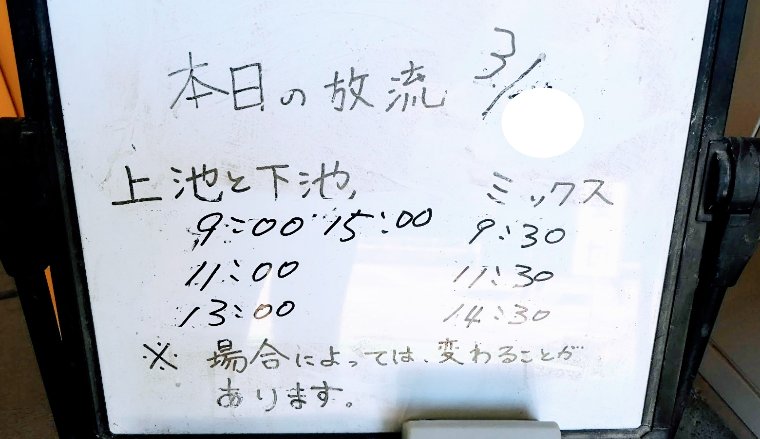 本日の放流 3/
上池と下池 ミックス
9:00 15:00 9:30
11:00 11:30
13:00 14:30
※ 場合によっては、変わることが
あります。